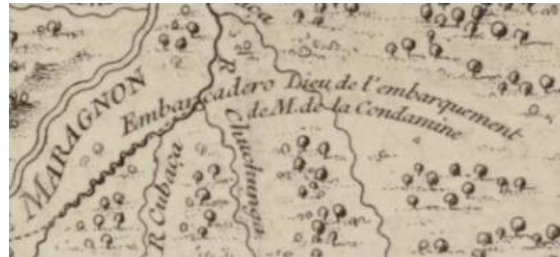 aça
MARAGNON
Embarcadero Dieu de l'embarquement
de M. de la Condamine
R
Chuchunga
R Cubaça